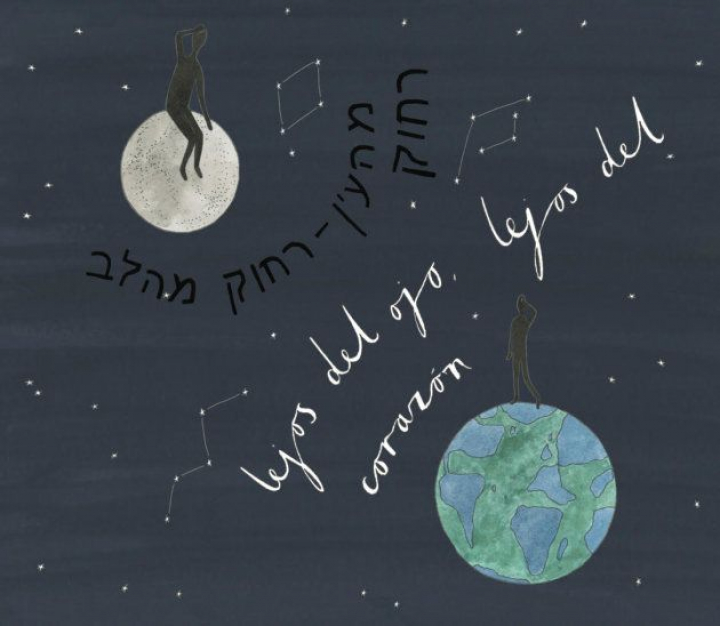 רחוק
מהעין - רחוק מהלב
lejos del ojo, lejos del
corazón